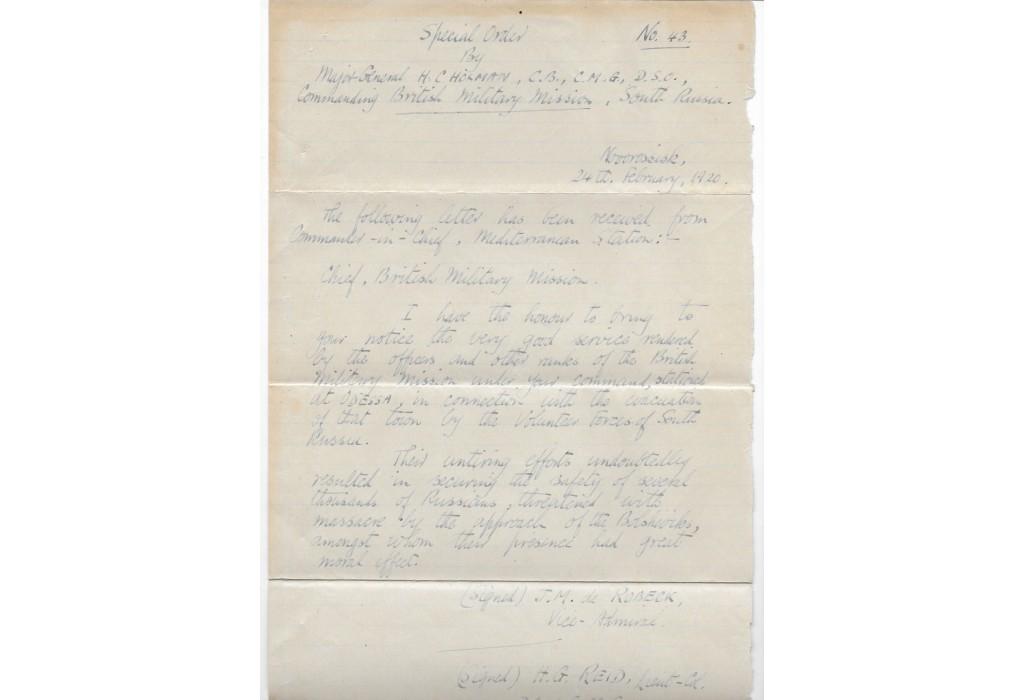 Special Order No. 43.
By
Major-General H. C HOLMAN, C.B., C.M.G, D.S.O.,
Commanding British Military Mission, South Russia.
Novorossisk,
24th. February, 1920.
The following letter has been received from
Commander-in-Chief, Mediterranean Station:-
Chief, British Military Mission.
I have the honour to bring to
your notice the very good service rendered
by the officers and other ranks of the British
Military Mission under your command, stationed
at ODESSA, in connection with the evacuation
of that town by the Volunteer forces of South
Russia.
Their untiring efforts undoubtedly
resulted in securing the safety of several
thousands of Russians, threatened with
massacre by the approach of the Bolsheviks,
amongst whom their presence had great
moral effect.
(Signed) J. M. de ROBECK,
Vice-Admiral.
(Signed) H. G. REID, Lieut-Col.